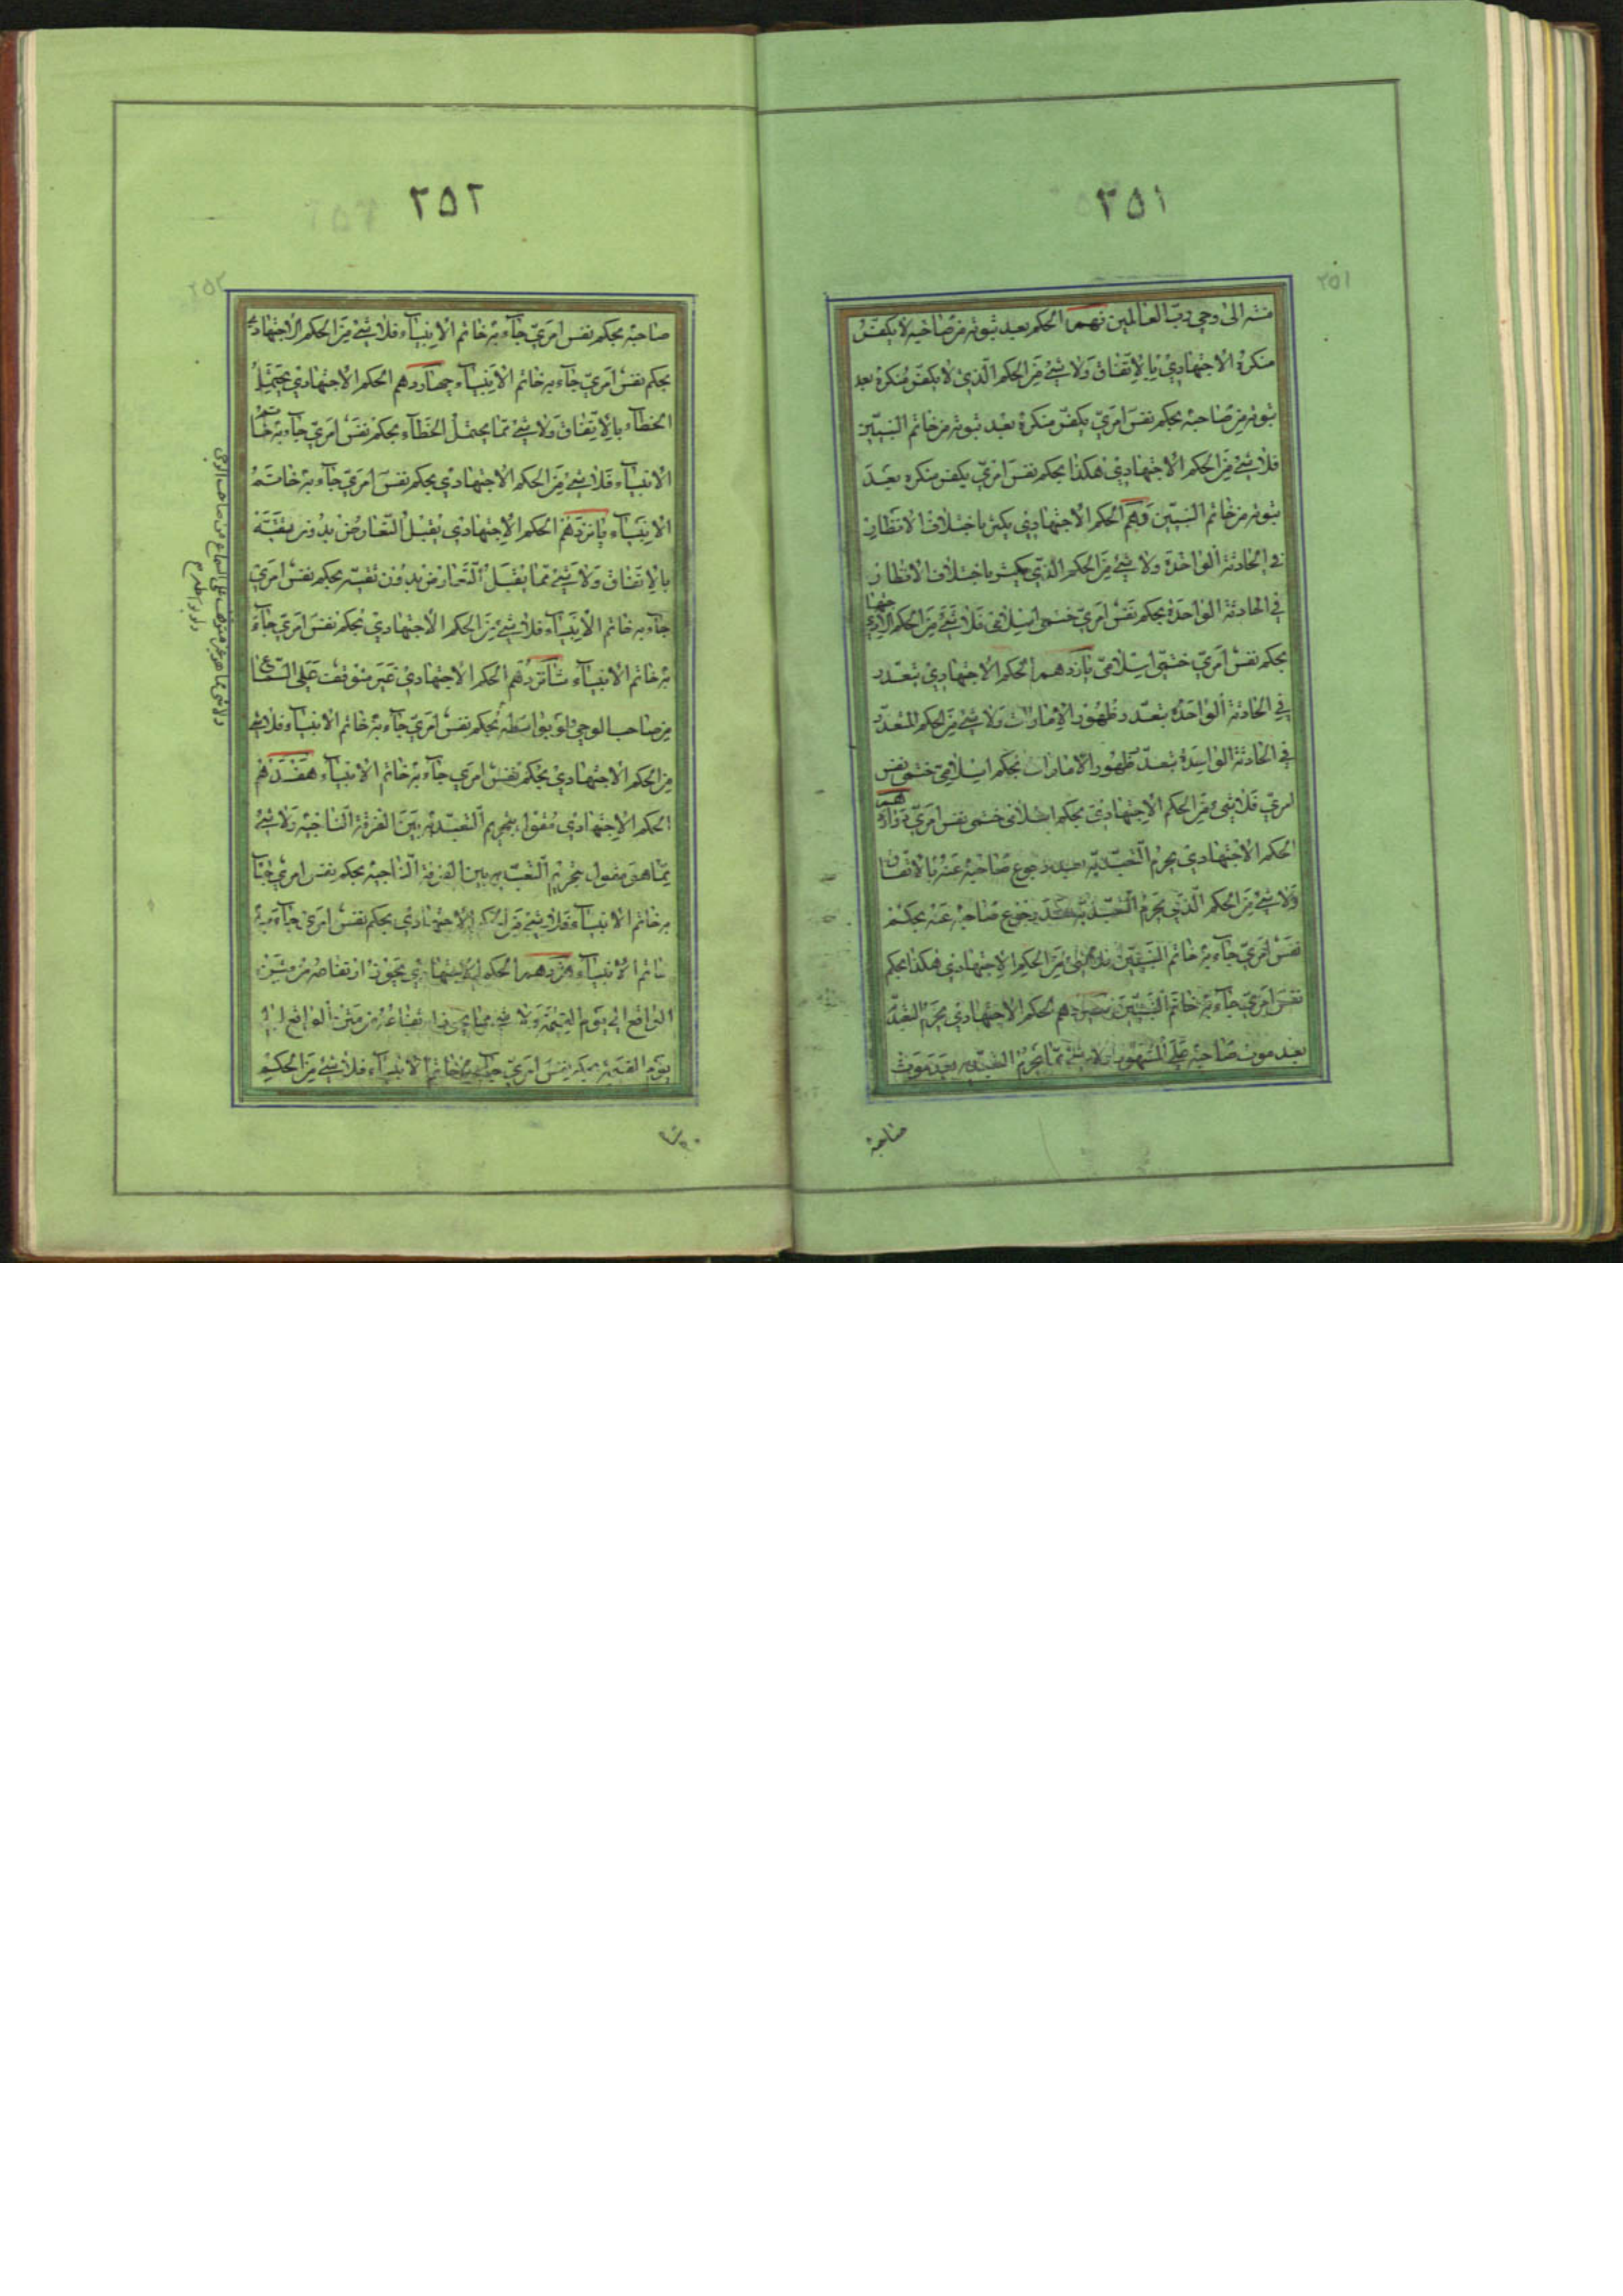 ۲۵۱
۲۵۱
منته الى وحي ربّ العالمين نهم الحكم بعد ثبوته من صاحبه لا يكفّر
منكره الاجتهادي بالاتّفاق ولا شئ من الحكم الّذي لا يكفّر منكره بعد
ثبوته من صاحبه بحكم نفس امريّ يكفّر منكره بعد ثبوته من خاتم النبيّين
فلا شئ من الحكم الاجتهادي هكذا بحكم نفس امريّ يكفر منكره بعد
ثبوته من خاتم النبيّين دهم الحكم الاجتهادي يكثر باختلاف الانظار
في الحادثة الواحدة ولا شئ من الحكم الذي يكثر باختلاف الانظار
في الحادثة الواحدة بحكم نفس امريّ ختمي اسلامي فلا شئ من الحكم الاجتهادي
بحكم نفس امريّ ختمي اسلاميّ يازدهم الحكم الاجتهادي يتعدّد
في الحادثة الواحدة بتعدد ظهور الامارات ولا شئ من الحكم المتعدّد
في الحادثة الواحدة بتعدّد ظهور الامارات بحكم اسلاميّ ختمي نفس
امريّ فلا شئ من الحكم الاجتهادي بحكم اسلامي ختمي نفس امريّ دوازدهم
الحكم الاجتهادي يحرم التعبّد به بعد رجوع صاحبه عنه بالاتّفاق
ولا شئ من الحكم الّذي يحرم التعبّد به بعد رجوع صاحبه عنه بحكم
نفس امريّ جاء به خاتم النبيّين فلا شئ من الحكم الاجتهادي هكذا بحكم
نفس امريّ جاء به خاتم النبيّين سيزدهم الحكم الاجتهادي يحرم التعبّد
بعد موت صاحبه على المشهور ولا شئ ممّا يحرم التعبّد به بعد موت
صاحبه
۲۵۲
۲۵۲
صاحبه بحكم نفس امريّ جاء به خاتم الانبياء فلا شئ من الحكم الاجتهادي
بحكم نفس امريّ جاء به خاتم الانبياء چهاردهم الحكم الاجتهادي يحتمل
الخطاء بالاتّفاق ولا شئ ممّا يحتمل الخطاء بحكم نفس امريّ جاء به خاتم
الانبياء فلا شئ من الحكم الاجتهادي بحكم نفس امريّ جاء به خاتم
الانبياء پانزدهم الحكم الاجتهادي يقبل التعارض بدون تقيّة
بالاتفاق ولا شئ ممّا يقبل التعارض بدون تقيّة بحكم نفس امريّ
جاء به خاتم الانبياء فلا شئ من الحكم الاجتهادي بحكم نفس امريّ جاء
به خاتم الانبياء شانزدهم الحكم الاجتهادي غير متوقّف على السّماع
من صاحب الوحي ولو بواسطه بحكم نفس امريّ جاء به خاتم الانبياء فلا شئ
من الحكم الاجتهادي بحكم نفس امري جاء به خاتم الانبياء هفدهم
الحكم الاجتهادي مقول بتحريم التعبّد به بين الفرقة الناجية ولا شئ
ممّا هو مقول بتحريم التعبّد به بين الفرقة الناجية بحكم نفس امري جاء
به خاتم الانبياء فلا شئ من الحكم الاجتهادي بحكم نفس امري جاء به
خاتم الانبياء هژدهم الحكم الاجتهادي يجوز ارتفاعه من متن
الواقع الى يوم القيمة ولا شئ ممّا يجوز ارتفاعه من متن الواقع الى
يوم القيمة بحكم نفس امريّ جاء به خاتم الانبياء فلا شئ من الحكم
ولا شئ مما هو غير متوقف على السماع من صاحب الوحي
ولو بواسطه